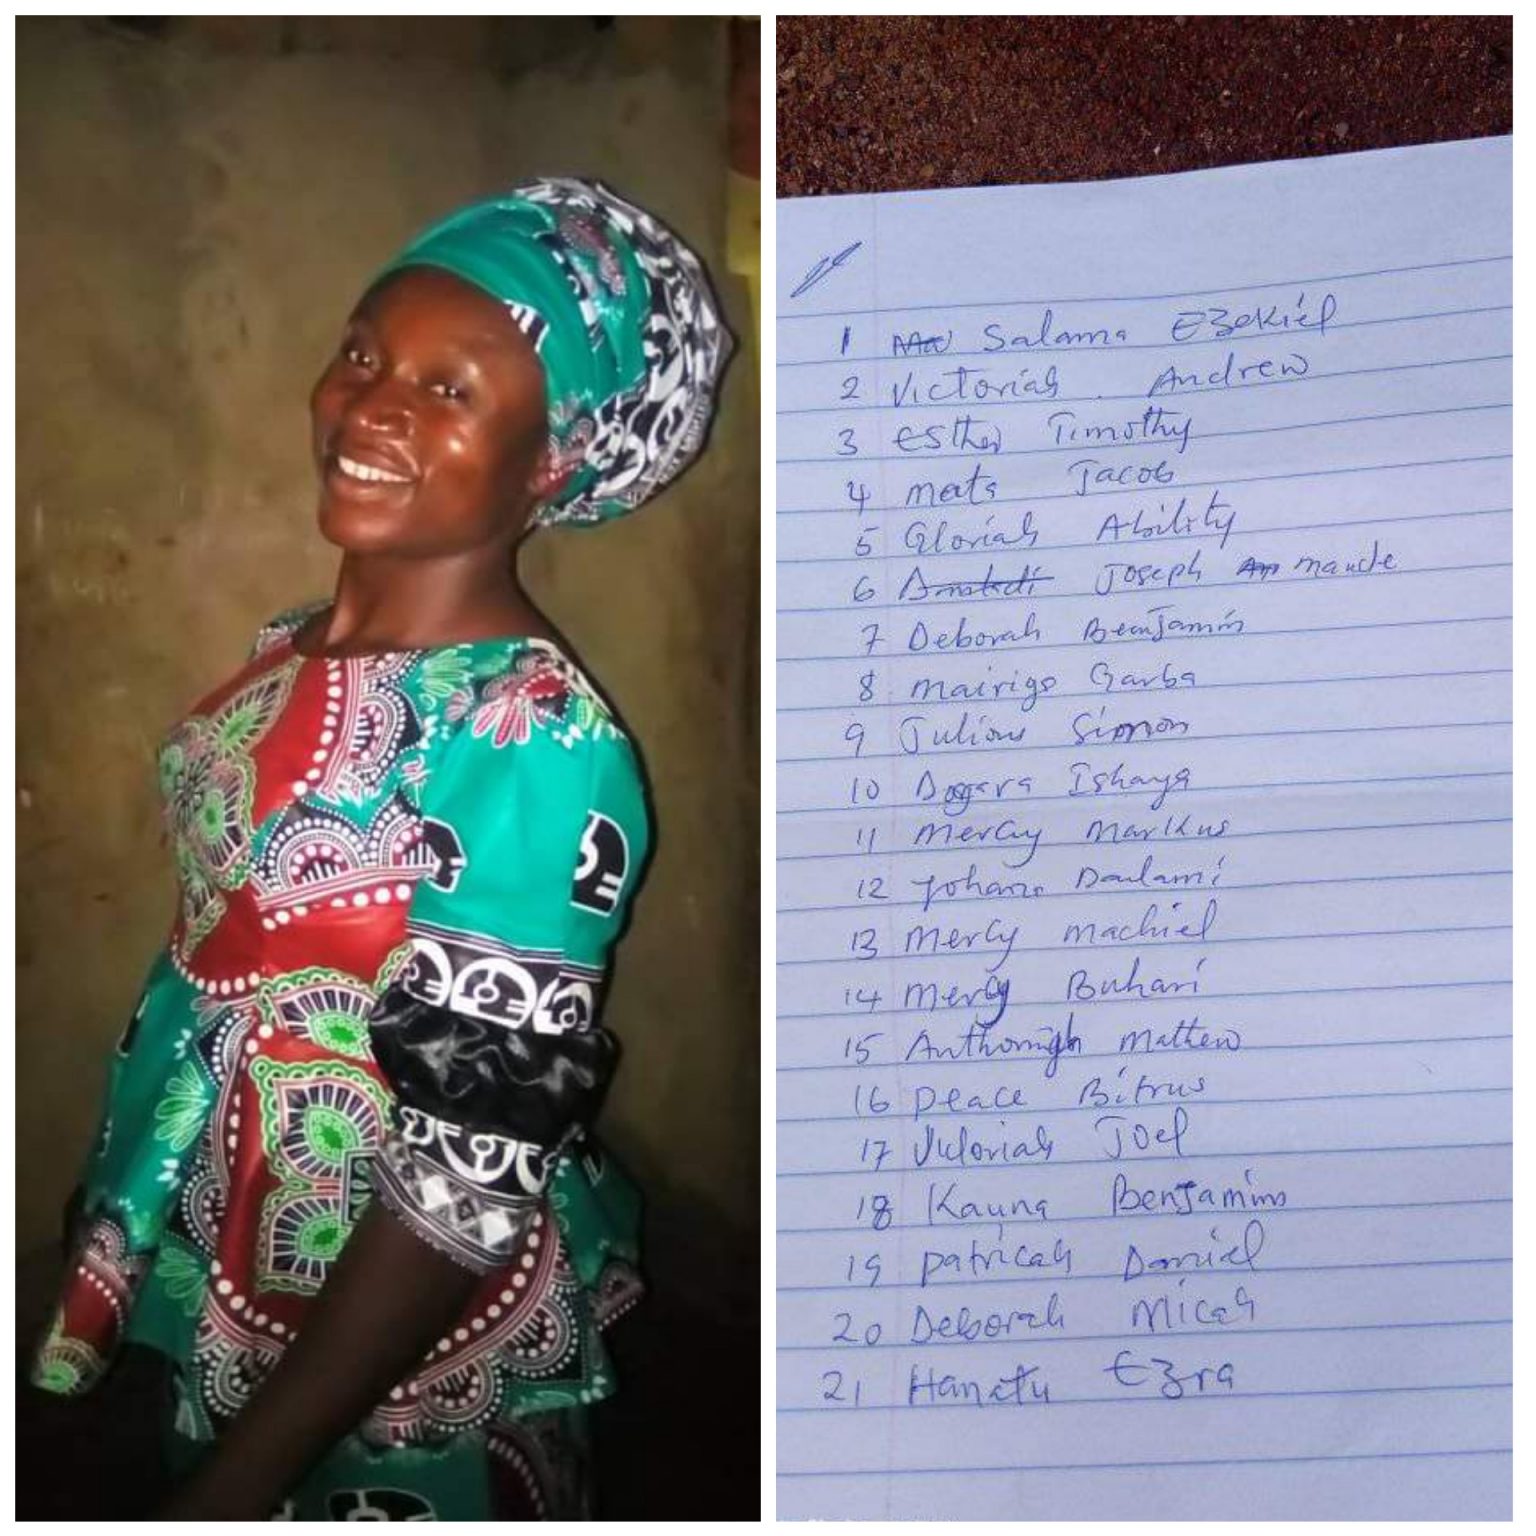 1 Salama Ezekiel
2 Victoriah Andrew
3 Esther Timothy
4 mata Jacob
5 Gloriah Ability
6 Amstedi Joseph maude
7 Deborah Benjamin
8 mairiga Garba
9 Julious Simon
10 Dogara Ishaya
11 mercy markus
12 Yohana Daulami
13 mercy machiel
14 mercy Buhari
15 Mathew
16 peace Bitrus
17 Victoriah Joel
18 Kauna Benjamin
19 patricah Daniel
20 Deborah Micah
21 Hanatu Ezra